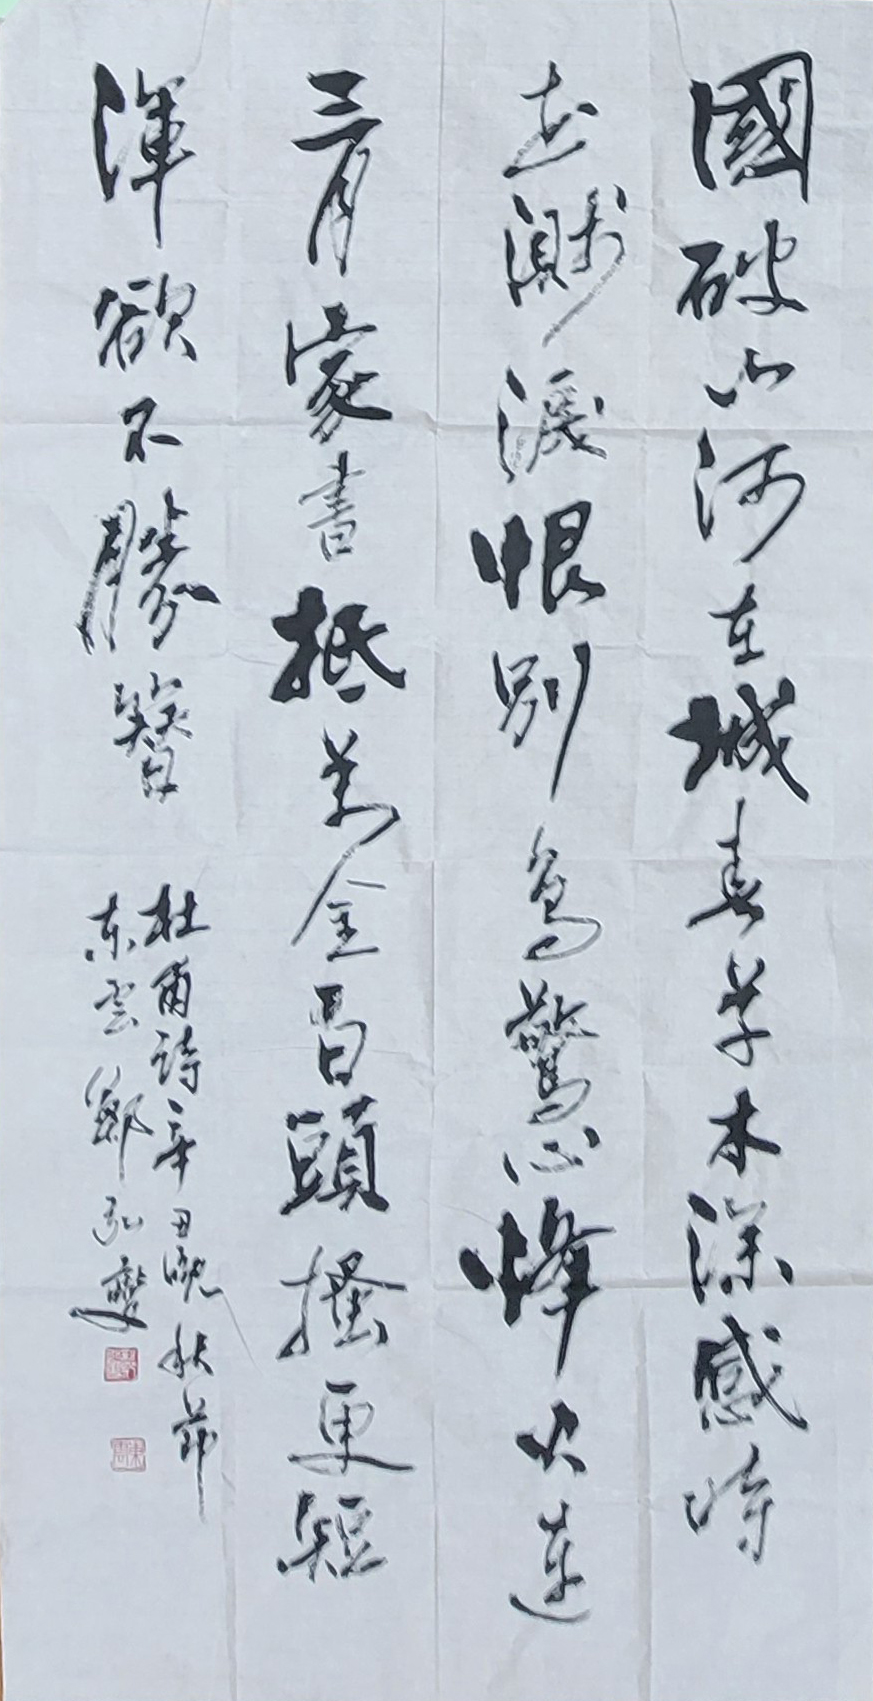 國破山河在城春草木深感時
花濺淚恨別鳥驚心烽火連
三月家書抵萬金白頭搔更短
渾欲不勝簪
杜甫詩辛丑晚秋節
东雲鄭弘燮